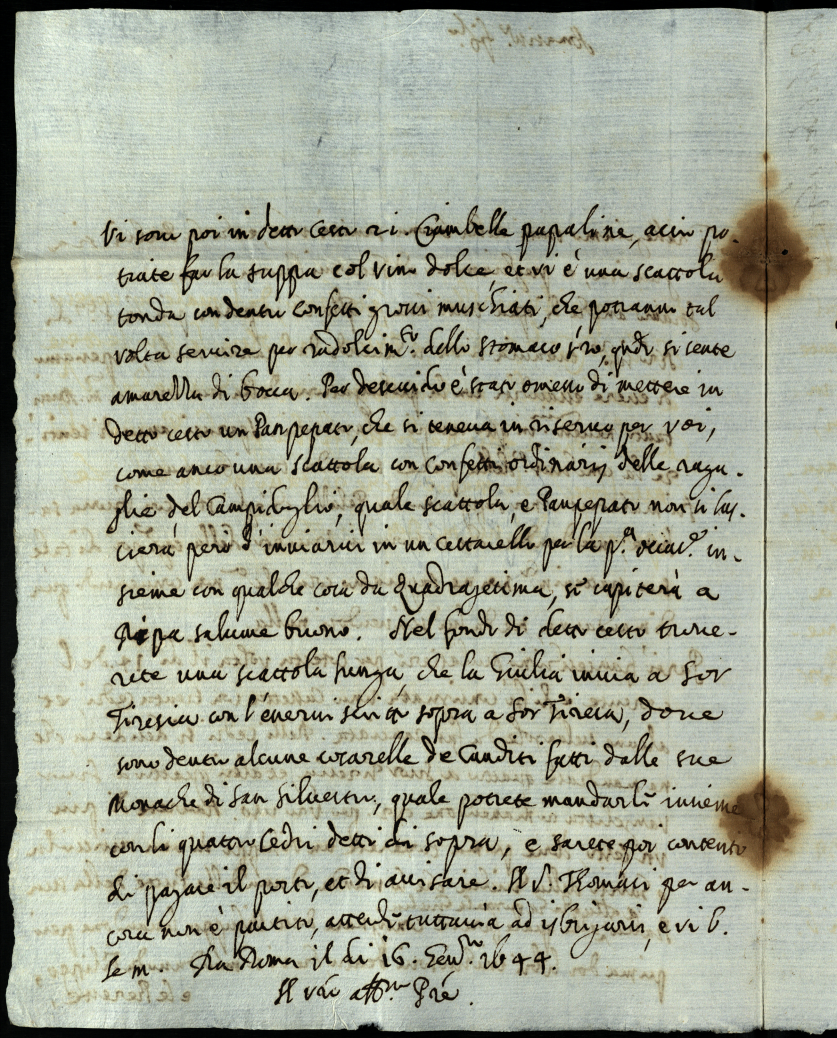 Vi sono poi in detto cesto 21. Ciambelle papaline, acciò po-
triate far la suppa col vino dolce, et vi è una scattola
tonda con dentro confetti grossi muschiati, che potranno tal
volta servire per radolcim.to dello stomaco v̄ro, qn̄do si sente
amarezza di bocca. Per descuido è stato omesso di mettere in
detto cesto un Panpepato, che si teneva in riservo per voi,
come anco una scattola con confetti ordinarij delle raga-
glie del Campidoglio, quale scattola, e Panpepato non si las-
cierà però d'inviarvi in un cestarello per la p.a occas.e in-
sieme con qualche cosa da Quadragesima, se capiterà a
Ripa salume buono. Nel fondo di detto cesto trove-
rete una scattola lunga, che la Giulia invia a Sor
Tiresia con l'enervi scritto sopra a Sor Tiresia, dove
sono dentro alcune cosarelle de Canditi fatti dalle sue
Monache di San Silvestro, quale potrete mandarle insieme
con li quattro Cedri detti di sopra, e sarete poi contento
di pagare il porto, et di avisare. Il S. Thomasi per an-
cora non è partito, attende tuttavia ad isbrigarsi, e vi b.
le m. Da Roma il di 16. Genn.ro 1644.
Il vro aff.mo Pre.